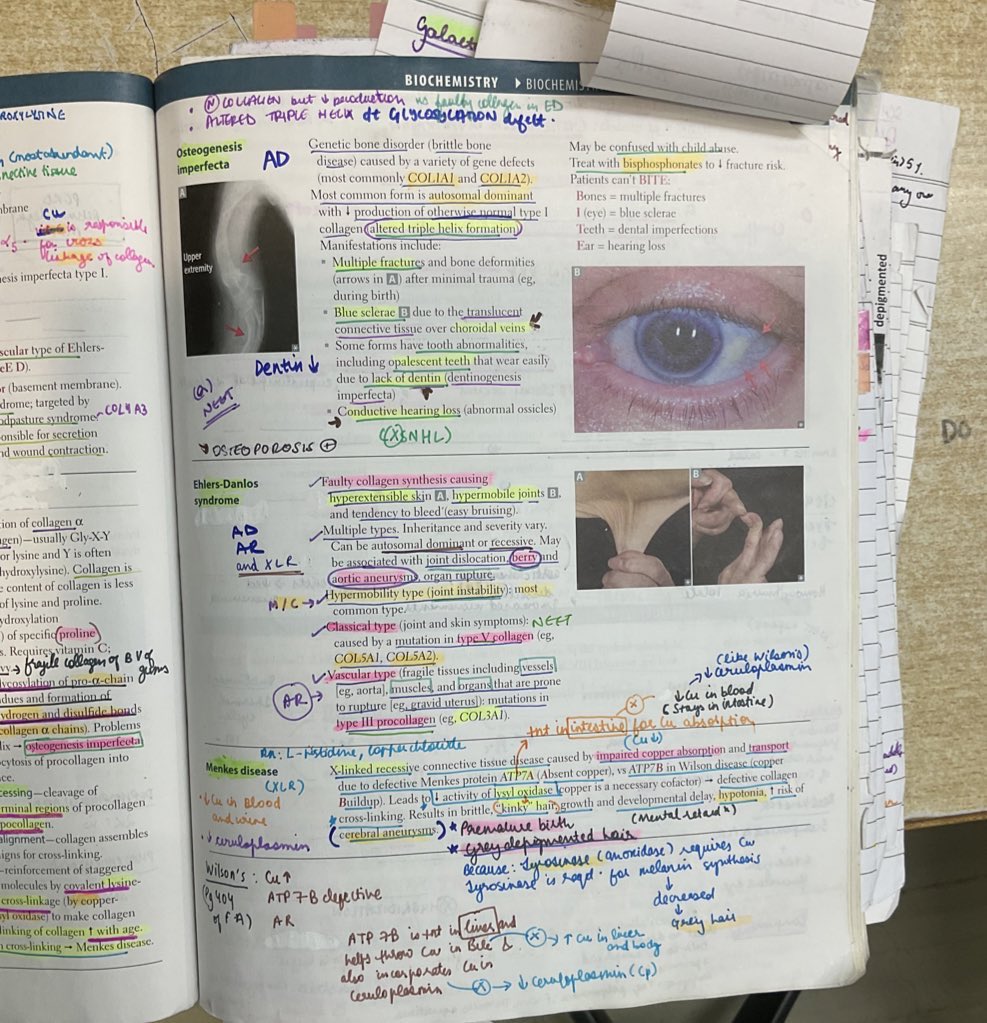 Galact
BIOCHEMISTRY ▶ BIOCHEMIS
• (N) COLLAGEN but ↓ production vs faulty collagen in ED
• ALTERED TRIPLE HELIX dt GLYCOSYLATION defect.
Osteogenesis
imperfecta
AD
Genetic bone disorder (brittle bone
disease) caused by a variety of gene defects
(most commonly COL1A1 and COL1A2).
Most common form is autosomal dominant
with ↓ production of otherwise normal type I
collagen (altered triple helix formation)
Manifestations include:
▪ Multiple fractures and bone deformities
(arrows in A) after minimal trauma (eg,
during birth)
▪ Blue sclerae B due to the translucent
connective tissue over choroidal veins
▪ Some forms have tooth abnormalities,
including opalescent teeth that wear easily
due to lack of dentin (dentinogenesis
imperfecta)
▪ Conductive hearing loss (abnormal ossicles)
(X SNHL)
A
Upper
extremity
Dentin ↓
(a)
NEET
OSTEOPOROSIS +
May be confused with child abuse.
Treat with bisphosphonates to ↓ fracture risk.
Patients can't BITE:
Bones = multiple fractures
I (eye) = blue sclerae
Teeth = dental imperfections
Ear = hearing loss
B
Ehlers-Danlos
syndrome
AD
AR
and XLR
Faulty collagen synthesis causing
hyperextensible skin A, hypermobile joints B,
and tendency to bleed (easy bruising).
Multiple types. Inheritance and severity vary.
Can be autosomal dominant or recessive. May
be associated with joint dislocation, berry and
aortic aneurysms, organ rupture.
M/C → Hypermobility type (joint instability): most
common type.
Classical type (joint and skin symptoms): NEET
caused by a mutation in type V collagen (eg,
COL5A1, COL5A2).
Vascular type (fragile tissues including vessels
[eg, aorta], muscles, and organs that are prone
to rupture [eg, gravid uterus]): mutations in
type III procollagen (eg, COL3A1).
AR →
A
B
(like Wilson's)
↓ ceruloplasmin
↓ Cu in blood
(Stays in intestine)
tnt in intestine for Cu absorption
(Cu↓)
Rx: L-histidine, copper chloride
Menkes disease
(XLR)
• ↓ Cu in Blood
and urine
• ↓ ceruloplasmin
X-linked recessive connective tissue disease caused by impaired copper absorption and transport
due to defective Menkes protein ATP7A (Absent copper), vs ATP7B in Wilson disease (copper
Buildup). Leads to ↓ activity of lysyl oxidase (copper is a necessary cofactor) → defective collagen
cross-linking. Results in brittle, "kinky" hair, growth and developmental delay, hypotonia, ↑ risk of
cerebral aneurysms.
(mental retardn)
* Premature birth
* Grey depigmented hair
Because: Tyrosinase (amoxidase) requires Cu
Tyrosinase is reqd. for melanin synthesis
↓
decreased
↓
Grey hair
Wilson's: Cu↑
(Pg 404
of FA)
ATP 7B defective
AR
ATP 7B is tnt in liver and
helps throw Cu in Bile &
also incorporates Cu in
ceruloplasmin
X → ↑ Cu in liver
and body
X → ↓ Ceruloplasmin (Cp)
ROXYLYSINE
(most abundant)
nective tissue
mbrane
Cu
is responsible
for cross
linkage of collagen
esis imperfecta type I.
scular type of Ehlers-
eE D).
r (basement membrane).
drome; targeted by
odpasture syndrome. COL4A3
onsible for secretion
nd wound contraction.
tion of collagen α
gen)—usually Gly-X-Y
or lysine and Y is often
hydroxylysine). Collagen is
e content of collagen is less
of lysine and proline.
ydroxylation
) of specific proline
s. Requires vitamin C;
vy → fragile collagen of BV of gums
lycosylation of pro-α-chain
dues and formation of
ydrogen and disulfide bonds
collagen α chains). Problems
lix → osteogenesis imperfecta
ocytosis of procollagen into
ce.
cessing—cleavage of
rminal regions of procollagen
pocollagen.
alignment—collagen assembles
igns for cross-linking.
—reinforcement of staggered
molecules by covalent lysine-
cross-linkage (by copper-
syl oxidase) to make collagen
linking of collagen ↑ with age.
n cross-linking → Menkes disease.
depigmented
any one
DO